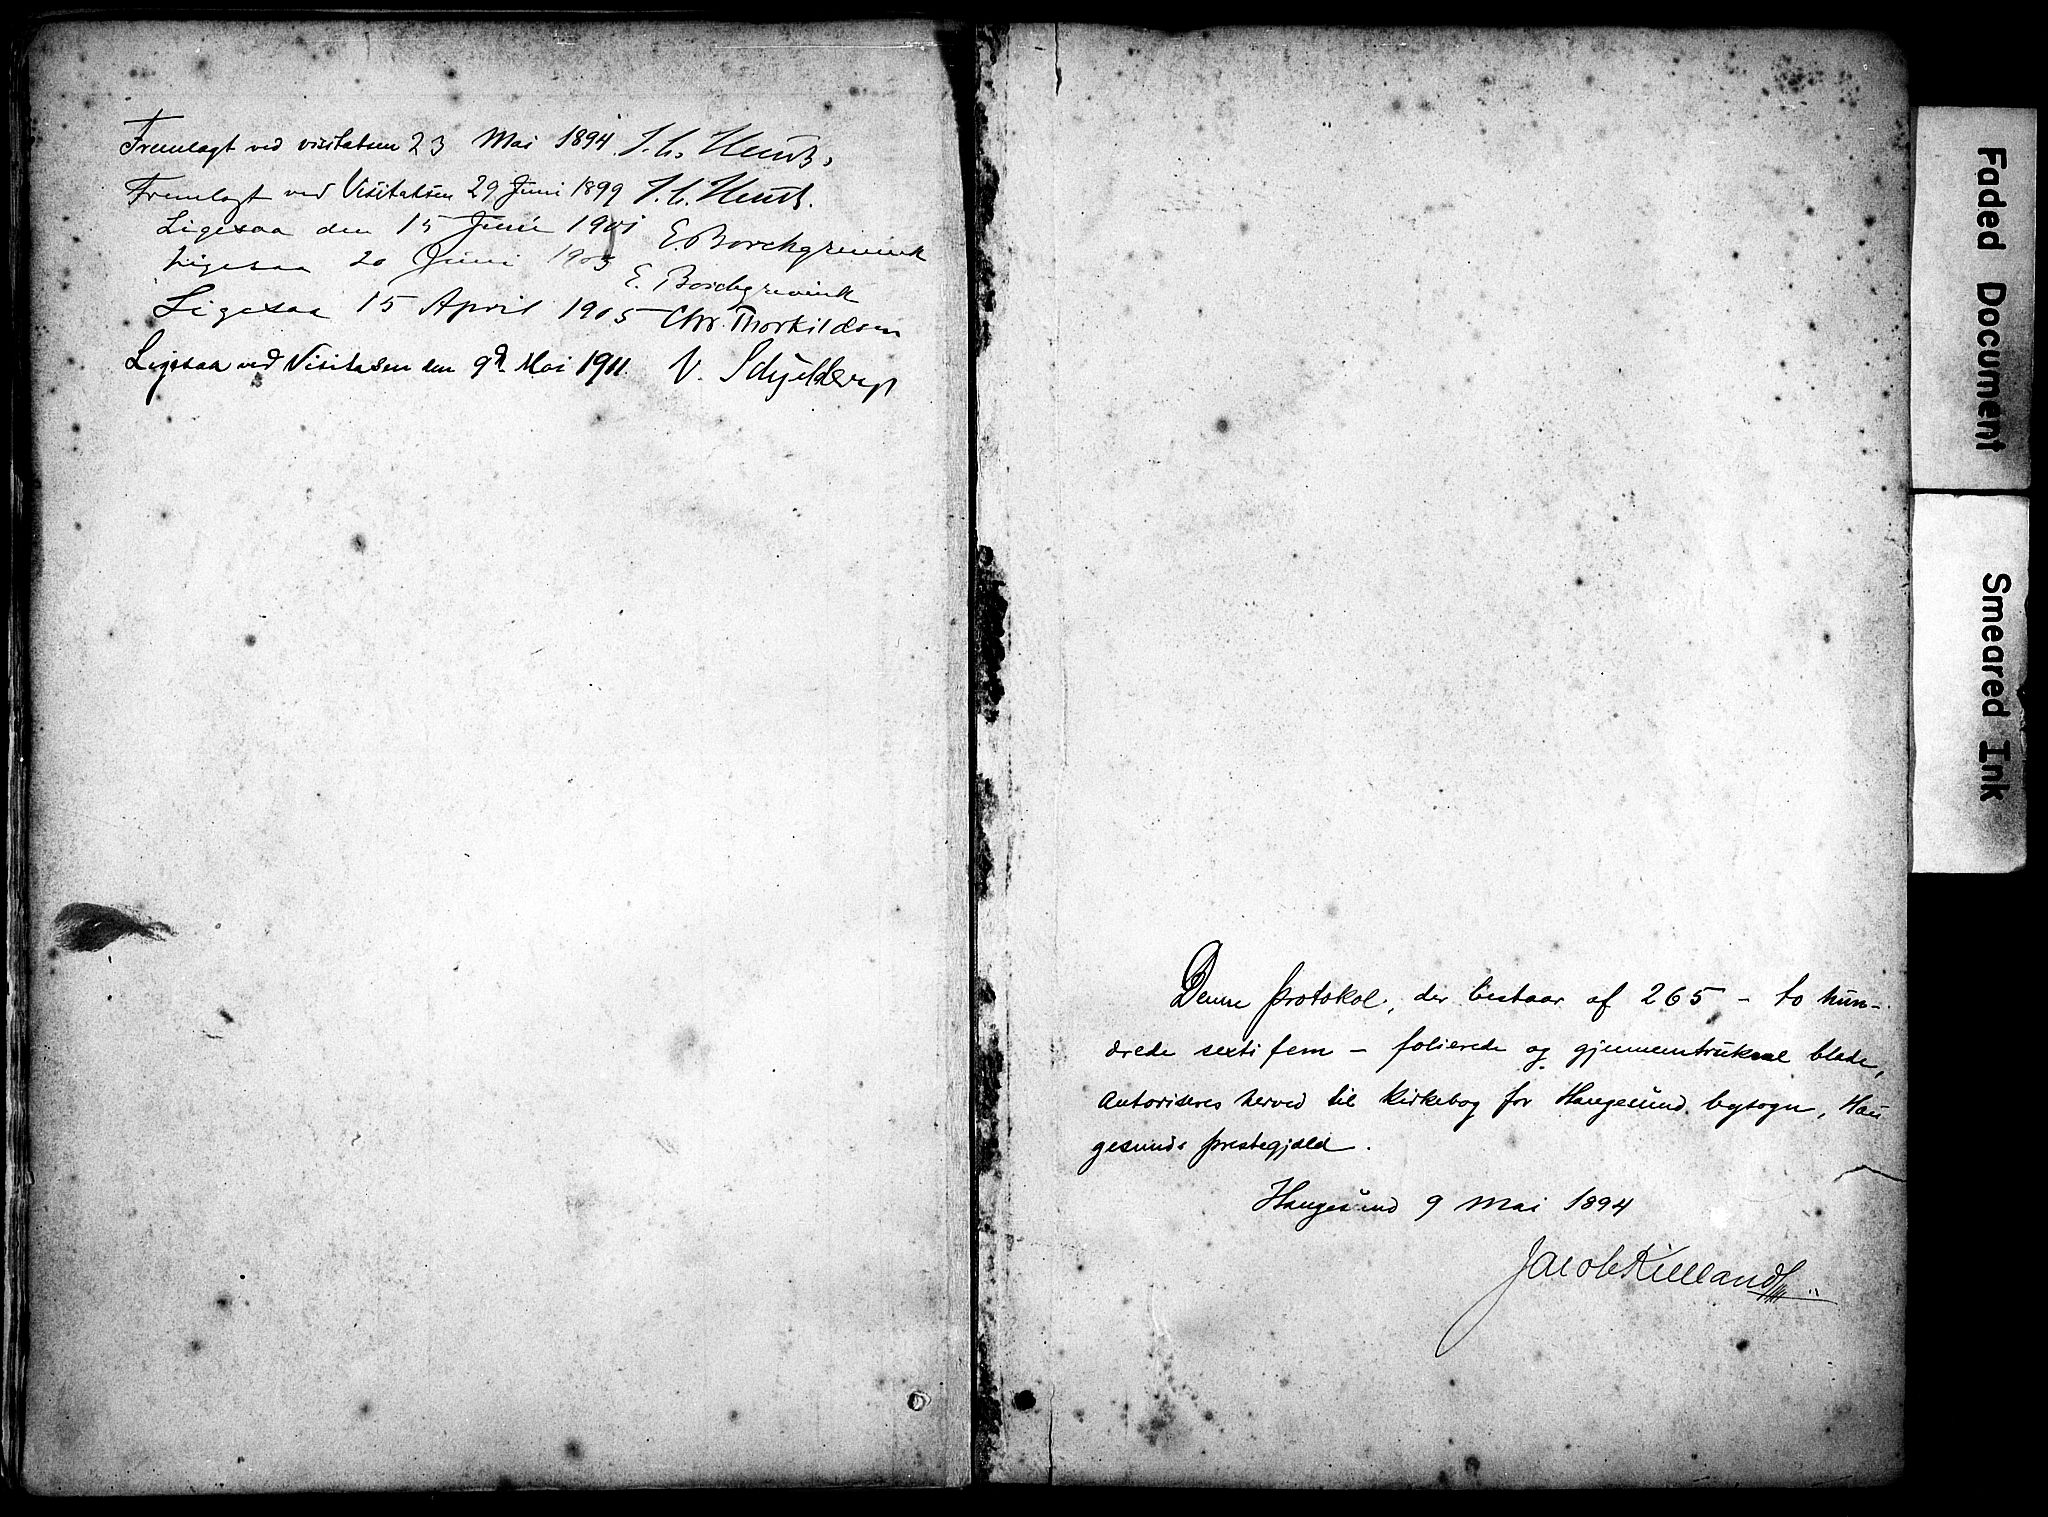 Fremlagt ved visitatsen 23 Mai 1894. J. C. Heuch.
Fremlagt ved Visitatsen 29 Juni 1899 J. C. Heuch.
Ligesaa den 15 Juni 1901 E. Borchgrevink
Ligesaa 20 Juni 1903
E. Borchgrevink
Ligesaa 15 April 1905 Chr. Thorkildsen
Ligesaa ved Visitasen den 9de Mai 1911. V. Schjelderup
Denne protokol, der bestaar af 265 – to hun-
drede sexti fem – folierede og gjennemtrukne blade,
autoriseres herved til kirkebog for Haugesund bysogn, Hau
gesunds prestegjæld.
Haugesund 9 Mai 1894
Jacob Kielland
Faded Document
Smeared Ink